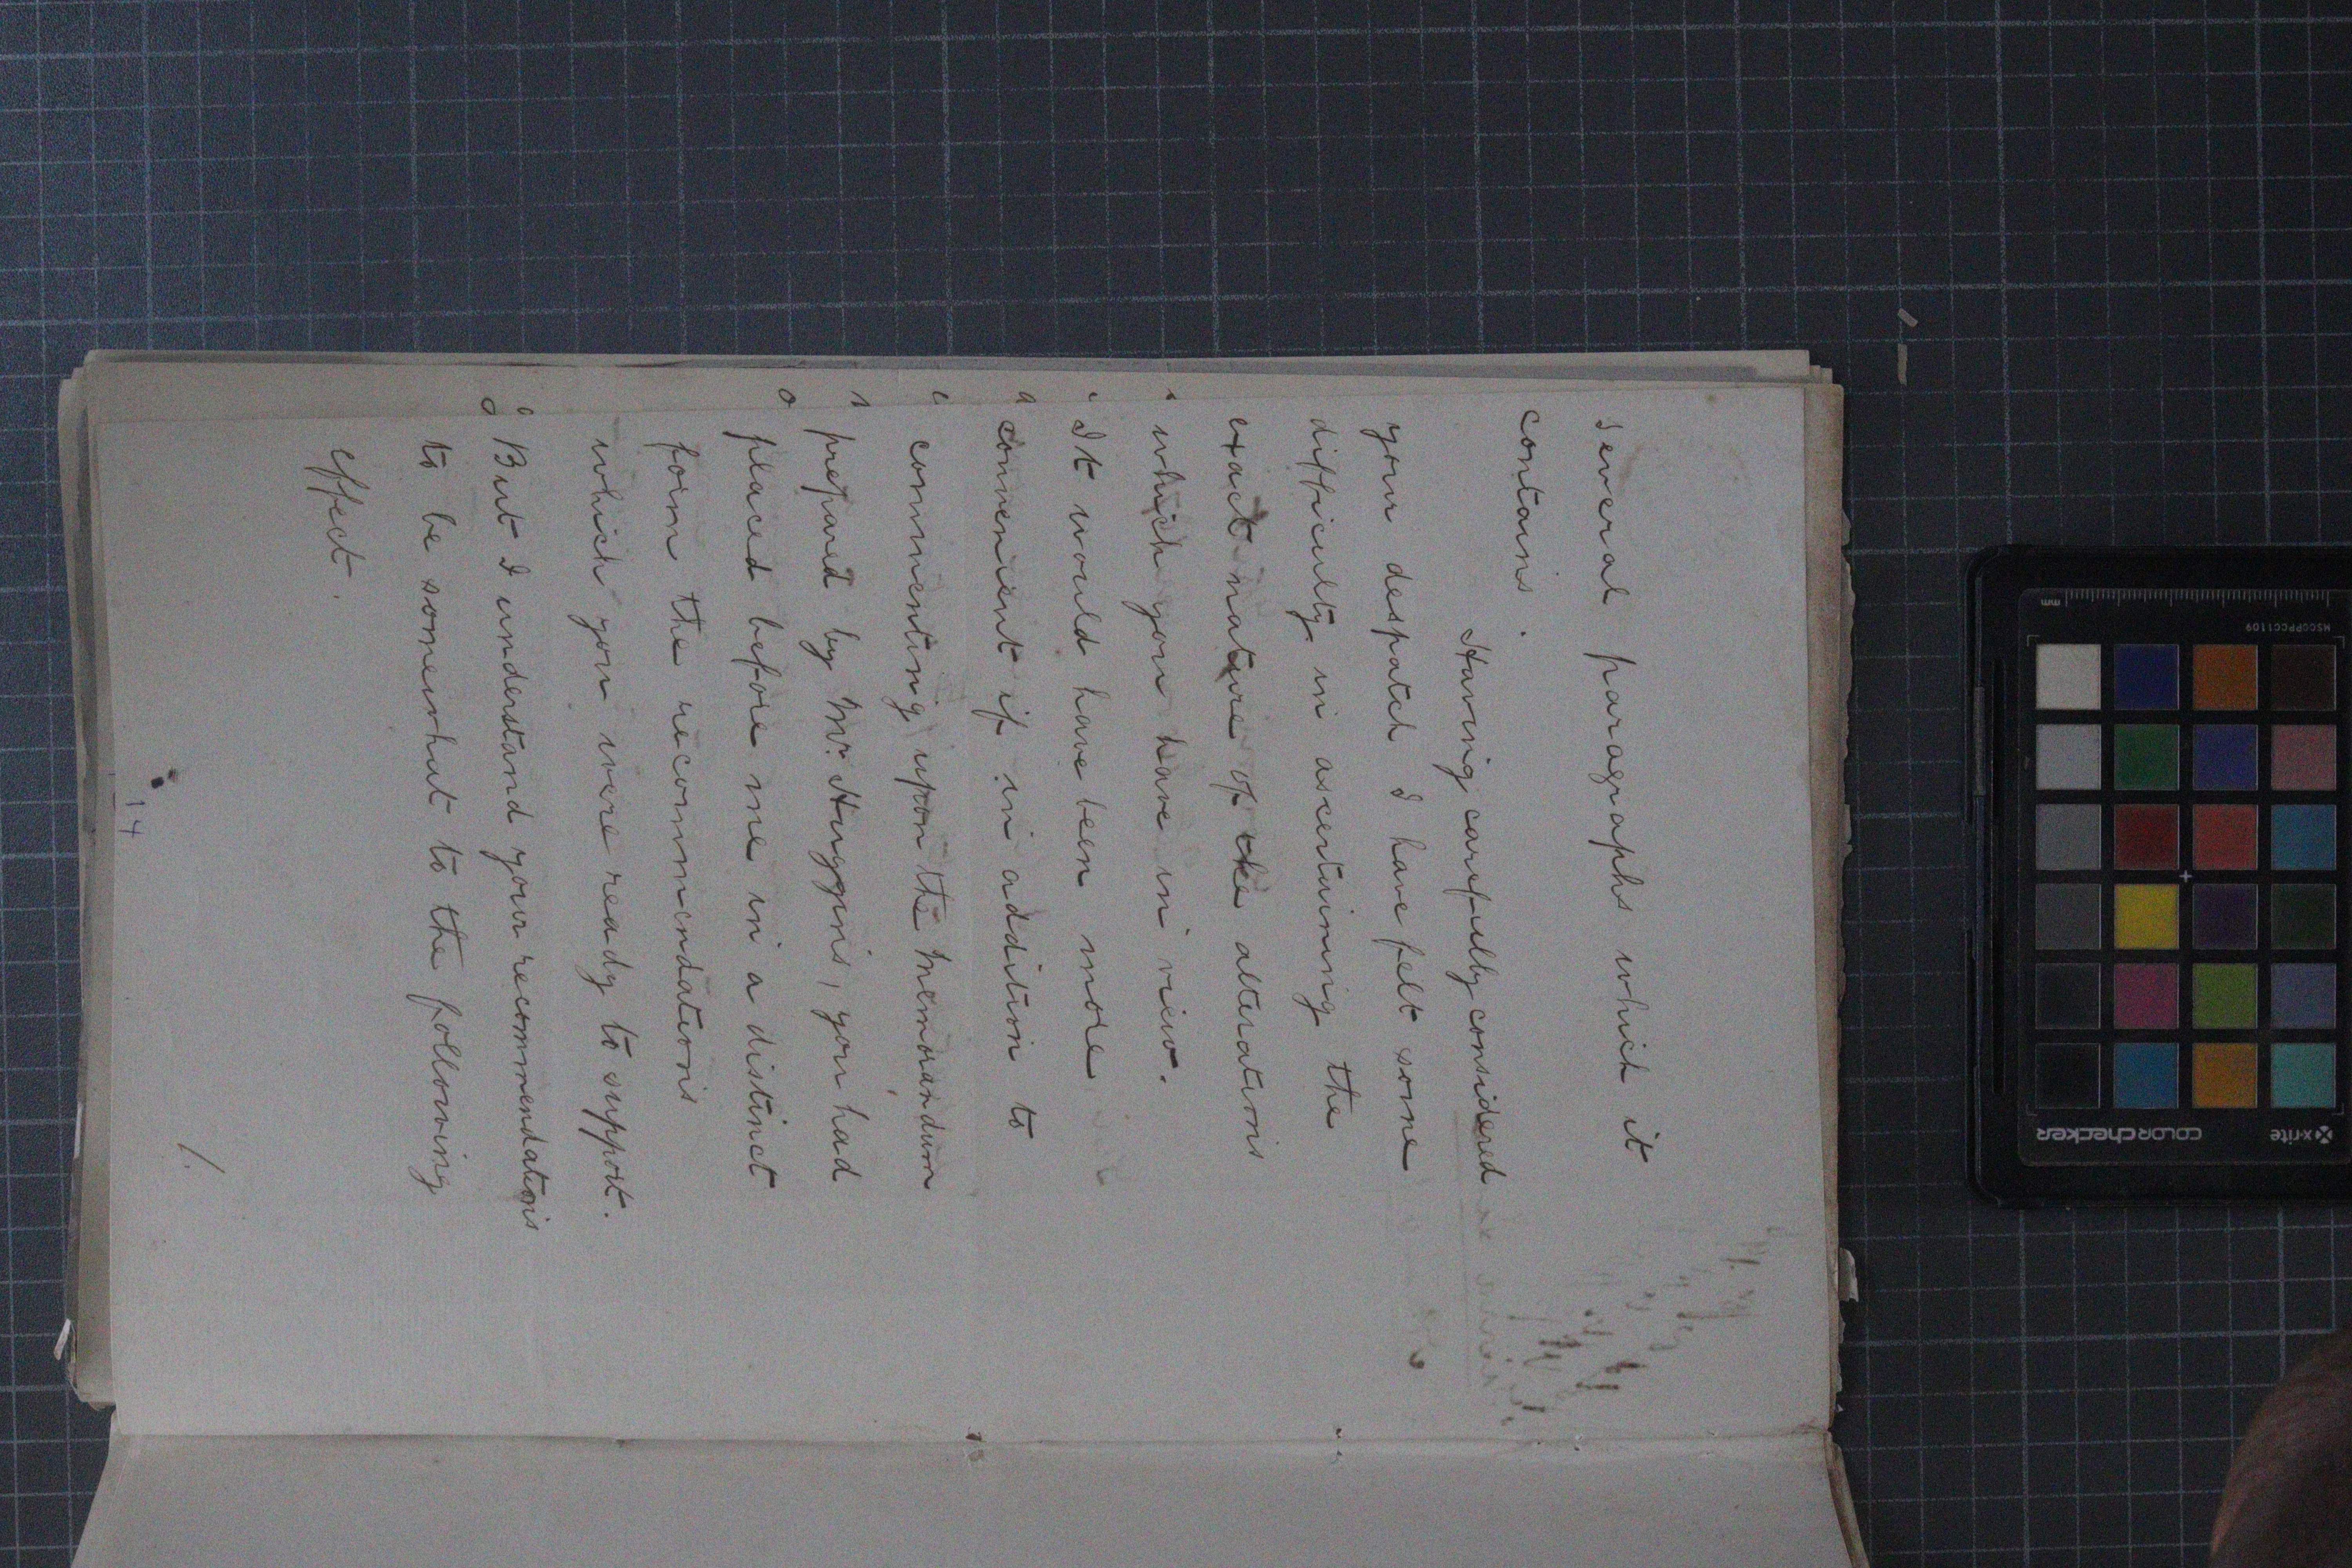 several paragraphs which it
contains.
Having carefully considered
your despatch I have felt some
difficulty in ascertaining the
exact nature of the alterations
which you have in view.
It would have been more
convenient if in addition to
commenting upon the Memorandum
prepared by Mr. Huggins, you had
placed before me in a distinct
form the recommendations
which you were ready to support.
But I understand your recommendations
to be somewhat to the following
effect.
1.
14
mm
MSCCPPCC1109
x-rite
colorchecker